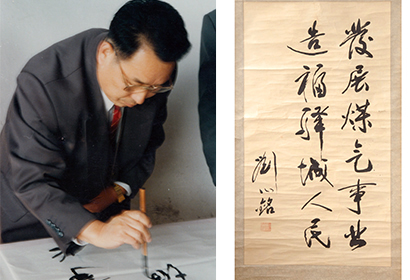 發展煤气事业
造福驿城人民
劉心銘